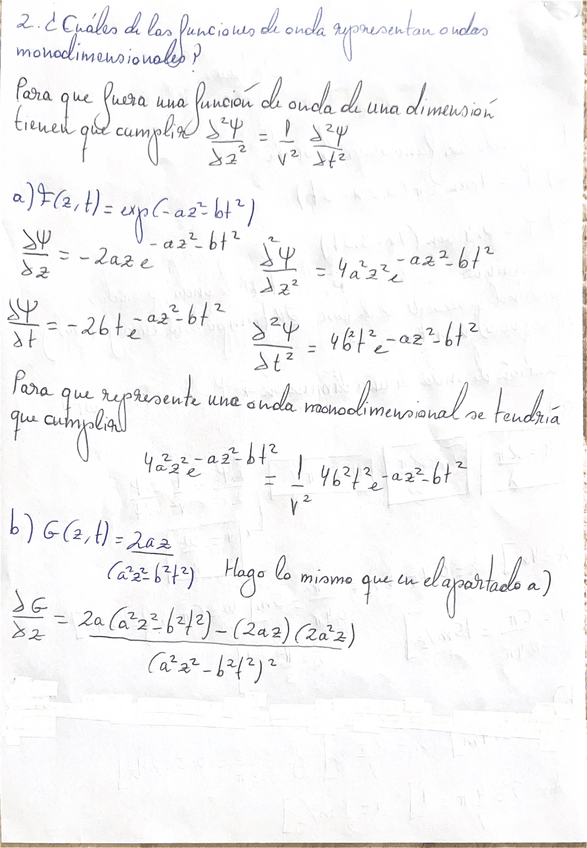 2. ¿Cuáles de las funciones de onda representan ondas
monodimensionales?
Para que fuera una función de onda de una dimensión
tienen que cumplir ∂²Ψ/∂z² = 1/v² ∂²Ψ/∂t²
a) F(z, t) = exp(-az²-bt²)
∂Ψ/∂z = -2az e^(-az²-bt²) ∂²Ψ/∂z² = 4a²z²e^(-az²-bt²)
∂Ψ/∂t = -2bte^(-az²-bt²) ∂²Ψ/∂t² = 4b²t²e^(-az²-bt²)
Para que represente una onda monodimensional se tendría
que cumplir
4a²z²e^(-az²-bt²) = 1/v² 4b²t²e^(-az²-bt²)
b) G(z, t) = 2az/(a²z²-b²t²) Hago lo mismo que en el apartado a)
∂G/∂z = 2a(a²z²-b²t²)-(2az)(2a²z)/(a²z²-b²t²)²